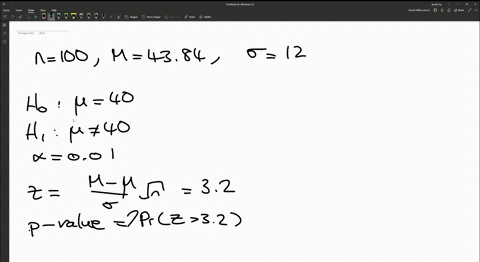 n=100, M=43.84, σ=12
H₀: μ=40
H₁: μ≠40
α=0.01
z = (M-μ)/σ √n = 3.2
p-value = 2Pr(Z>3.2)